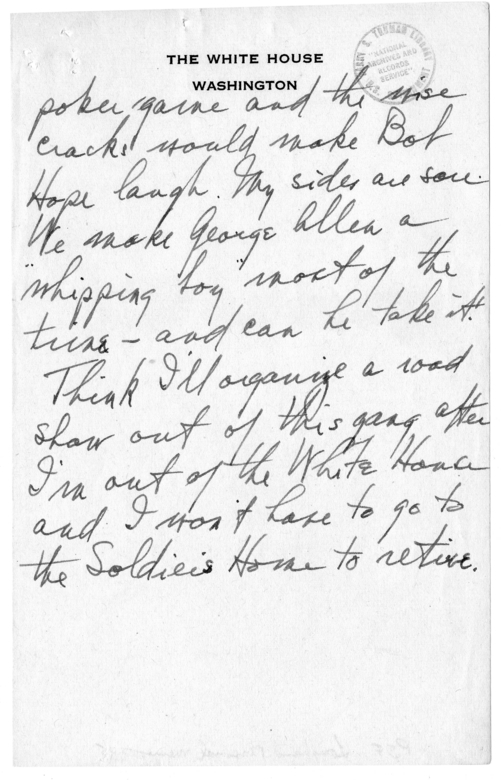 THE WHITE HOUSE
WASHINGTON
HARRY S. TRUMAN LIBRARY
"NATIONAL
ARCHIVES AND
RECORDS
SERVICE"
poker game and the wise
cracks would make Bob
Hope laugh. My sides are sore.
We make George Allen a
"whipping boy" most of the
time – and can he take it!
Think I'll organize a road
show out of this gang after
I'm out of the White House
and I won't have to go to
the Soldiers Home to retire.